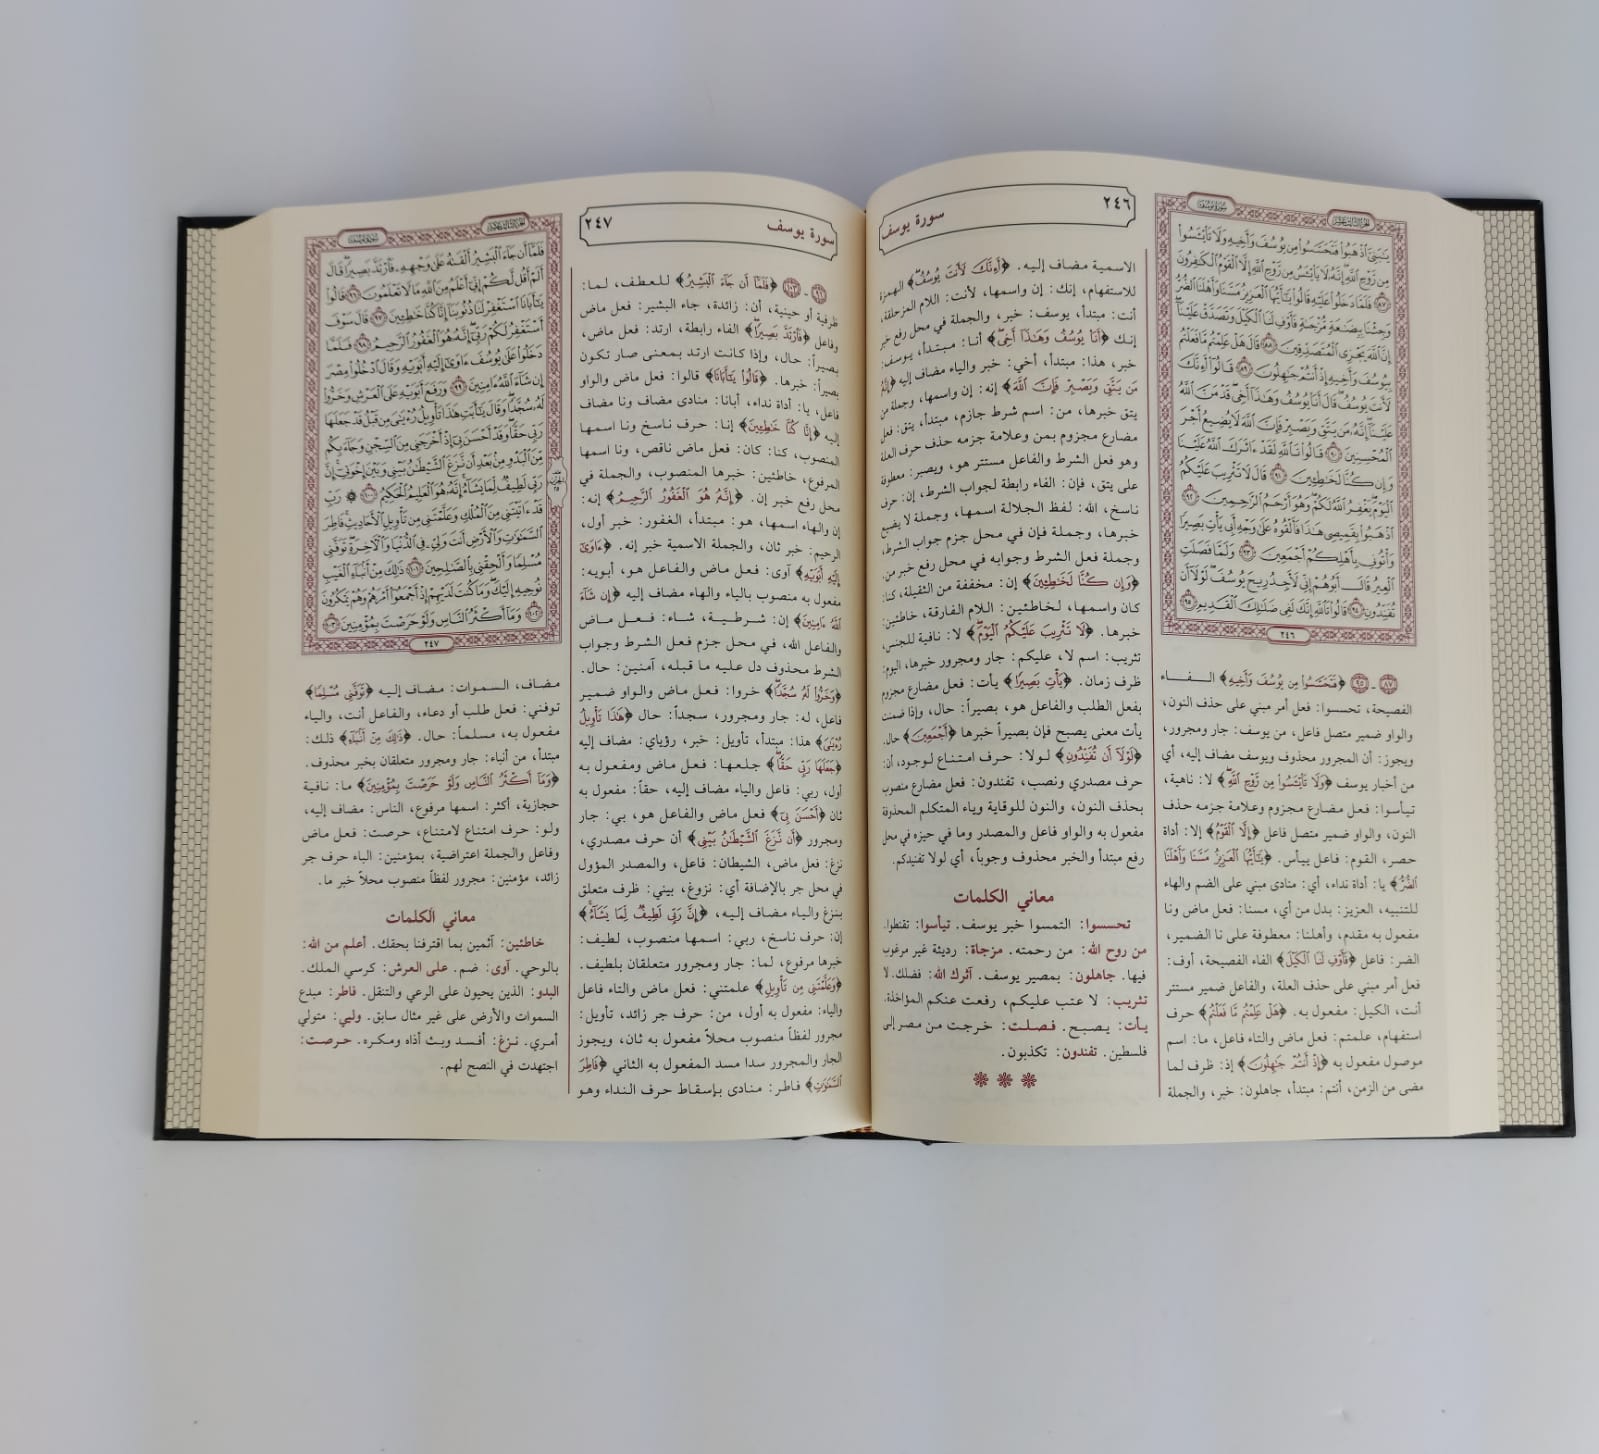 ٢٤٦
سورة يوسف
الجزء الثالث عشر
سورة يوسف
يَٰبَنِيَّ ٱذْهَبُوا۟ فَتَحَسَّسُوا۟ مِن يُوسُفَ وَأَخِيهِ وَلَا تَا۟يْـَٔسُوا۟
مِن رَّوْحِ ٱللَّهِ إِنَّهُۥ لَا يَا۟يْـَٔسُ مِن رَّوْحِ ٱللَّهِ إِلَّا ٱلْقَوْمُ ٱلْكَٰفِرُونَ
٨٧ فَلَمَّا دَخَلُوا۟ عَلَيْهِ قَالُوا۟ يَٰٓأَيُّهَا ٱلْعَزِيزُ مَسَّنَا وَأَهْلَنَا ٱلضُّرُّ
وَجِئْنَا بِبِضَٰعَةٍ مُّزْجَىٰةٍ فَأَوْفِ لَنَا ٱلْكَيْلَ وَتَصَدَّقْ عَلَيْنَآ
إِنَّ ٱللَّهَ يَجْزِى ٱلْمُتَصَدِّقِينَ ٨٨ قَالَ هَلْ عَلِمْتُم مَّا فَعَلْتُم
بِيُوسُفَ وَأَخِيهِ إِذْ أَنتُمْ جَٰهِلُونَ ٨٩ قَالُوٓا۟ أَءِنَّكَ
لَأَنتَ يُوسُفُ قَالَ أَنَا۠ يُوسُفُ وَهَٰذَآ أَخِى قَدْ مَنَّ ٱللَّهُ
عَلَيْنَآ إِنَّهُۥ مَن يَتَّقِ وَيَصْبِرْ فَإِنَّ ٱللَّهَ لَا يُضِيعُ أَجْرَ
ٱلْمُحْسِنِينَ ٩٠ قَالُوا۟ تَٱللَّهِ لَقَدْ ءَاثَرَكَ ٱللَّهُ عَلَيْنَا
وَإِن كُنَّا لَخَٰطِـِٔينَ ٩١ قَالَ لَا تَثْرِيبَ عَلَيْكُمُ
ٱلْيَوْمَ يَغْفِرُ ٱللَّهُ لَكُمْ وَهُوَ أَرْحَمُ ٱلرَّٰحِمِينَ ٩٢
ٱذْهَبُوا۟ بِقَمِيصِى هَٰذَا فَأَلْقُوهُ عَلَىٰ وَجْهِ أَبِى يَأْتِ بَصِيرًا
وَأْتُونِى بِأَهْلِكُمْ أَجْمَعِينَ ٩٣ وَلَمَّا فَصَلَتِ
ٱلْعِيرُ قَالَ أَبُوهُمْ إِنِّى لَأَجِدُ رِيحَ يُوسُفَ لَوْلَآ أَن
تُفَنِّدُونِ ٩٤ قَالُوا۟ تَٱللَّهِ إِنَّكَ لَفِى ضَلَٰلِكَ ٱلْقَدِيمِ ٩٥
٢٤٦
٨٧ - ٩٥ ﴿فَتَحَسَّسُوا مِن يُوسُفَ وَأَخِيهِ﴾ الفاء
الفصيحة، تحسسوا: فعل أمر مبني على حذف النون،
والواو ضمير متصل فاعل، من يوسف: جار ومجرور،
ويجوز: أن المجرور محذوف ويوسف مضاف إليه، أي
من أخبار يوسف ﴿وَلَا تَا۟يْـَٔسُوا مِن رَّوْحِ اللَّهِ﴾ لا: ناهية،
تيأسوا: فعل مضارع مجزوم وعلامة جزمه حذف
النون، والواو ضمير متصل فاعل ﴿إِلَّا الْقَوْمُ﴾ إلا: أداة
حصر، القوم: فاعل ييأس. ﴿يَٰٓأَيُّهَا الْعَزِيزُ مَسَّنَا وَأَهْلَنَا
الضُّرُّ﴾ يا: أداة نداء، أي: منادى مبني على الضم والهاء
للتنبيه، العزيز: بدل من أي، مسنا: فعل ماض ونا
مفعول به مقدم، وأهلنا: معطوفة على نا الضمير،
الضر: فاعل ﴿فَأَوْفِ لَنَا الْكَيْلَ﴾ الفاء الفصيحة، أوف:
فعل أمر مبني على حذف العلة، والفاعل ضمير مستتر
أنت، الكيل: مفعول به. ﴿هَلْ عَلِمْتُم مَّا فَعَلْتُم﴾ حرف
استفهام، علمتم: فعل ماض والتاء فاعل، ما: اسم
موصول مفعول به ﴿إِذْ أَنتُمْ جَٰهِلُونَ﴾ إذ: ظرف لما
مضى من الزمن، أنتم: مبتدأ، جاهلون: خبر، والجملة
الاسمية مضاف إليه. ﴿أَءِنَّكَ لَأَنتَ يُوسُفُ﴾ الهمزة
للاستفهام، إنك: إن واسمها، لأنت: اللام المزحلقة،
أنت: مبتدأ، يوسف: خبر، والجملة في محل رفع خبر
إنك ﴿أَنَا يُوسُفُ وَهَٰذَا أَخِى﴾ أنا: مبتدأ، يوسف:
خبر، هذا: مبتدأ، أخي: خبر والياء مضاف إليه ﴿إِنَّهُ
مَن يَتَّقِ وَيَصْبِرْ فَإِنَّ اللَّهَ﴾ إنه: إن واسمها، وجملة من
يتق خبرها، من: اسم شرط جازم، مبتدأ، يتق: فعل
مضارع مجزوم بمن وعلامة جزمه حذف حرف العلة
وهو فعل الشرط والفاعل مستتر هو، ويصبر: معطوفة
على يتق، فإن: الفاء رابطة لجواب الشرط، إن: حرف
ناسخ، الله: لفظ الجلالة اسمها، وجملة لا يضيع
خبرها، وجملة فإن في محل جزم جواب الشرط،
وجملة فعل الشرط وجوابه في محل رفع خبر من.
﴿وَإِن كُنَّا لَخَٰطِـِٔينَ﴾ إن: مخففة من الثقيلة، كنا:
كان واسمها، لخاطئين: اللام الفارقة، خاطئين:
خبرها. ﴿لَا تَثْرِيبَ عَلَيْكُمُ الْيَوْمَ﴾ لا: نافية للجنس،
تثريب: اسم لا، عليكم: جار ومجرور خبرها، اليوم:
ظرف زمان. ﴿يَأْتِ بَصِيرًا﴾ يأت: فعل مضارع مجزوم
بفعل الطلب والفاعل هو، بصيراً: حال، وإذا ضمنت
يأت معنى يصبح فإن بصيراً خبرها ﴿أَجْمَعِينَ﴾ حال.
﴿لَوْلَا أَن تُفَنِّدُونِ﴾ لولا: حرف امتناع لوجود، أن:
حرف مصدري ونصب، تفندون: فعل مضارع منصوب
بحذف النون، والنون للوقاية وياء المتكلم المحذوفة
مفعول به والواو فاعل والمصدر وما في حيزه في محل
رفع مبتدأ والخبر محذوف وجوباً، أي لولا تفنيدكم.
معاني الكلمات
تحسسوا: التمسوا خبر يوسف. تيأسوا: تقنطوا.
من روح الله: من رحمته. مزجاة: رديئة غير مرغوب
فيها. جاهلون: بمصير يوسف. آثرك الله: فضلك. لا
تثريب: لا عتب عليكم، رفعت عنكم المؤاخذة.
يأت: يصبح. فصلت: خرجت من مصر إلى
فلسطين. تفندون: تكذبون.
سورة يوسف
٢٤٧
٩٦ - ١٠٣ ﴿فَلَمَّا أَن جَاءَ الْبَشِيرُ﴾ للعطف، لما:
ظرفية أو حينية، أن: زائدة، جاء البشير: فعل ماض
وفاعل ﴿فَارْتَدَّ بَصِيرًا﴾ الفاء رابطة، ارتد: فعل ماض،
بصيراً: حال، وإذا كانت ارتد بمعنى صار تكون
بصيراً: خبرها. ﴿قَالُوا يَٰٓأَبَانَا﴾ قالوا: فعل ماض والواو
فاعل، يا: أداة نداء، أبانا: منادى مضاف ونا مضاف
إليه ﴿إِنَّا كُنَّا خَٰطِـِٔينَ﴾ إنا: حرف ناسخ ونا اسمها
المنصوب، كنا: كان: فعل ماض ناقص، ونا اسمها
المرفوع، خاطئين: خبرها المنصوب، والجملة في
محل رفع خبر إن. ﴿إِنَّهُ هُوَ الْغَفُورُ الرَّحِيمُ﴾ إنه:
إن والهاء اسمها، هو: مبتدأ، الغفور: خبر أول،
الرحيم: خبر ثان، والجملة الاسمية خبر إنه. ﴿ءَاوَىٰ
إِلَيْهِ أَبَوَيْهِ﴾ آوى: فعل ماض والفاعل هو، أبويه:
مفعول به منصوب بالياء والهاء مضاف إليه ﴿إِن شَاءَ
اللَّهُ ءَامِنِينَ﴾ إن: شرطية، شاء: فعل ماض
والفاعل الله، في محل جزم فعل الشرط وجواب
الشرط محذوف دل عليه ما قبله، آمنين: حال.
﴿وَخَرُّوا لَهُ سُجَّدًا﴾ خروا: فعل ماض والواو ضمير
فاعل، له: جار ومجرور، سجداً: حال ﴿هَٰذَا تَأْوِيلُ
رُءْيَٰىَ﴾ هذا: مبتدأ، تأويل: خبر، رؤياي: مضاف إليه
﴿جَعَلَهَا رَبِّى حَقًّا﴾ جلعها: فعل ماض ومفعول به
أول، ربي: فاعل والياء مضاف إليه، حقاً: مفعول به
ثان ﴿أَحْسَنَ بِى﴾ فعل ماض والفاعل هو، بي: جار
ومجرور ﴿أَن نَّزَغَ الشَّيْطَٰنُ بَيْنِى﴾ أن حرف مصدري،
نزغ: فعل ماض، الشيطان: فاعل، والمصدر المؤول
في محل جر بالإضافة أي: نزوغ، بيني: ظرف متعلق
بنزغ والياء مضاف إليه، ﴿إِنَّ رَبِّى لَطِيفٌ لِّمَا يَشَاءُ﴾
إن: حرف ناسخ، ربي: اسمها منصوب، لطيف:
خبرها مرفوع، لما: جار ومجرور متعلقان بلطيف.
﴿وَعَلَّمْتَنِى مِن تَأْوِيلِ﴾ علمتني: فعل ماض والتاء فاعل
والياء: مفعول به أول، من: حرف جر زائد، تأويل:
مجرور لفظاً منصوب محلاً مفعول به ثان، ويجوز
الجار والمجرور سدا مسد المفعول به الثاني ﴿فَاطِرَ
السَّمَٰوَٰتِ﴾ فاطر: منادى بإسقاط حرف النداء وهو
الجزء الثالث عشر
سورة يوسف
فَلَمَّآ أَن جَآءَ ٱلْبَشِيرُ أَلْقَىٰهُ عَلَىٰ وَجْهِهِۦ فَٱرْتَدَّ بَصِيرًا قَالَ
أَلَمْ أَقُل لَّكُمْ إِنِّىٓ أَعْلَمُ مِنَ ٱللَّهِ مَا لَا تَعْلَمُونَ ٩٦ قَالُوا۟
يَٰٓأَبَانَا ٱسْتَغْفِرْ لَنَا ذُنُوبَنَآ إِنَّا كُنَّا خَٰطِـِٔينَ ٩٧ قَالَ سَوْفَ
أَسْتَغْفِرُ لَكُمْ رَبِّىٓ إِنَّهُۥ هُوَ ٱلْغَفُورُ ٱلرَّحِيمُ ٩٨ فَلَمَّا
دَخَلُوا۟ عَلَىٰ يُوسُفَ ءَاوَىٰٓ إِلَيْهِ أَبَوَيْهِ وَقَالَ ٱدْخُلُوا۟ مِصْرَ
إِن شَآءَ ٱللَّهُ ءَامِنِينَ ٩٩ وَرَفَعَ أَبَوَيْهِ عَلَى ٱلْعَرْشِ وَخَرُّوا۟
لَهُۥ سُجَّدًا وَقَالَ يَٰٓأَبَتِ هَٰذَا تَأْوِيلُ رُءْيَٰىَ مِن قَبْلُ قَدْ جَعَلَهَا
رَبِّى حَقًّا وَقَدْ أَحْسَنَ بِىٓ إِذْ أَخْرَجَنِى مِنَ ٱلسِّجْنِ وَجَآءَ بِكُم
مِّنَ ٱلْبَدْوِ مِنۢ بَعْدِ أَن نَّزَغَ ٱلشَّيْطَٰنُ بَيْنِى وَبَيْنَ إِخْوَتِىٓ إِنَّ
رَبِّى لَطِيفٌ لِّمَا يَشَآءُ إِنَّهُۥ هُوَ ٱلْعَلِيمُ ٱلْحَكِيمُ ١٠٠ ۞ رَبِّ
قَدْ ءَاتَيْتَنِى مِنَ ٱلْمُلْكِ وَعَلَّمْتَنِى مِن تَأْوِيلِ ٱلْأَحَادِيثِ فَاطِرَ
ٱلسَّمَٰوَٰتِ وَٱلْأَرْضِ أَنتَ وَلِىِّۦ فِى ٱلدُّنْيَا وَٱلْءَاخِرَةِ تَوَفَّنِى
مُسْلِمًا وَأَلْحِقْنِى بِٱلصَّٰلِحِينَ ١٠١ ذَٰلِكَ مِنْ أَنۢبَآءِ ٱلْغَيْبِ
نُوحِيهِ إِلَيْكَ وَمَا كُنتَ لَدَيْهِمْ إِذْ أَجْمَعُوٓا۟ أَمْرَهُمْ وَهُمْ يَمْكُرُونَ
١٠٢ وَمَآ أَكْثَرُ ٱلنَّاسِ وَلَوْ حَرَصْتَ بِمُؤْمِنِينَ ١٠٣
٢٤٧
مضاف، السموات: مضاف إليه ﴿تَوَفَّنِى مُسْلِمًا﴾
توفني: فعل طلب أو دعاء، والفاعل أنت، والياء
مفعول به، مسلماً: حال. ﴿ذَٰلِكَ مِنْ أَنۢبَاءِ﴾ ذلك:
مبتدأ، من أنباء: جار ومجرور متعلقان بخبر محذوف.
﴿وَمَا أَكْثَرُ النَّاسِ وَلَوْ حَرَصْتَ بِمُؤْمِنِينَ﴾ ما: نافية
حجازية، أكثر: اسمها مرفوع، الناس: مضاف إليه،
ولو: حرف امتناع لامتناع، حرصت: فعل ماض
وفاعل والجملة اعتراضية، بمؤمنين: الباء حرف جر
زائد، مؤمنين: مجرور لفظاً منصوب محلاً خبر ما.
معاني الكلمات
خاطئين: آثمين بما اقترفنا بحقك. أعلم من الله:
بالوحي. آوى: ضم. على العرش: كرسي الملك.
البدو: الذين يحيون على الرعي والتنقل. فاطر: مبدع
السموات والأرض على غير مثال سابق. وليي: متولي
أمري. نزغ: أفسد وبث أذاه ومكره. حرصت:
اجتهدت في النصح لهم.